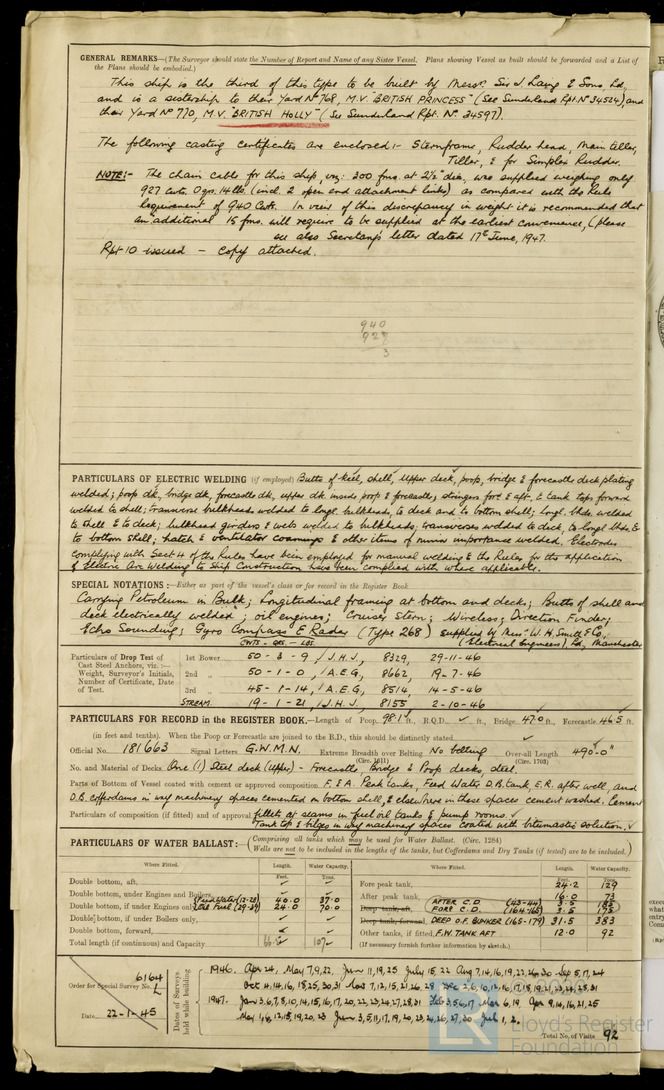 GENERAL REMARKS—(The Surveyor should state the Number of Report and Name of any Sister Vessel. Plans showing Vessel as built should be forwarded and a List of
the Plans should be embodied.)
This ship is the third of this type to be built by Messrs. Sir J. Laing & Sons Ld,
and is a sistership to their Yard No 768, M.V. "BRITISH PRINCESS" (See Sunderland Rpt. No 34524), and
their Yard No 770, M.V. "BRITISH HOLLY" (See Sunderland Rpt. No 34597).
The following casting certificates are enclosed:- Sternframe, Rudder head, Main tiller,
Tiller, & for Simplex Rudder.
NOTE:- The chain cable for this ship, viz: 300 fms. at 2 1/2" dia, was supplied weighing only
927 cwts. 0 qrs. 14 lbs. (incl. 2 open end attachment links) as compared with the Rule
requirement of 940 Cwts. In view of this discrepancy in weight it is recommended that
an additional 15 fms. will require to be supplied at the earliest convenience, (please
see also Secretary's letter dated 17th June, 1947.
Rpt 10 issued - Copy attached.
940
927
3
PARTICULARS OF ELECTRIC WELDING (if employed) Butts of keel, shell, upper deck, poop, bridge & forecastle deck plating
welded; poop dk, bridge dk, forecastle dk, upper dk inside poop & forecastle, stringers fore & aft, & tank tops forward
welded to shell; transverse bulkheads welded to longl. bulkheads, to deck and to bottom shell; longl. bhds. welded
to shell & to deck; bulkhead girders & webs welded to bulkheads; transverses welded to deck, to longl. bhds. &
to bottom shell; hatch & ventilator coamings & other items of minor importance welded. Electrodes
complying with Sect. 4 of the Rules have been employed for manual welding & the Rules for the application
of Electric Arc Welding to Ship Construction have been complied with where applicable.
SPECIAL NOTATIONS:—Either as part of the vessel's class or for record in the Register Book
Carrying Petroleum in Bulk; Longitudinal framing at bottom and decks; Butts of shell and
deck electrically welded; oil engines; Cruiser Stern; Wireless; Direction Finder;
Echo Sounding; Gyro Compass & Radar (Type 268) supplied by Messrs. W. H. Smith & Co,
(Electrical Engineers) Ld, Manchester
CWTS - QRS. - LBS.
Particulars of Drop Test of
Cast Steel Anchors, viz.:—
Weight, Surveyor's Initials,
Number of Certificate, Date
of Test.
1st Bower 50 - 3 - 9, J.H.J., 8329, 29-11-46
2nd „ 50 - 1 - 0, A.E.G, 8662, 19-7-46
3rd „ 45 - 1 - 14, A.E.G, 8514, 14-5-46
STREAM 19 - 1 - 21, J.H.J, 8155 2-10-46
PARTICULARS FOR RECORD in the REGISTER BOOK.—Length of Poop, 98.1 ft., R.Q.D., ✓ ft., Bridge 47.0 ft., Forecastle 46.5 ft.
(in feet and tenths). When the Poop or Forecastle are joined to the B.D., this should be distinctly stated. ✓
Official No. 181663 Signal Letters G.W.M.N. Extreme Breadth over Belting No belting Over-all Length 490'-0"
(Circ. 1611) (Circ. 1703)
No. and Material of Decks One (1) Steel deck (Upper) - Forecastle, Bridge & Poop decks, steel.
Parts of Bottom of Vessel coated with cement or approved composition. F. & A. Peak tanks, Feed Water D.B. tank, E.R. after well, and
D.B. cofferdams in way machinery spaces cemented on bottom shell, & elsewhere in these spaces cement washed. Cement
Particulars of composition (if fitted) and of approval fillets at seams in fuel oil tanks & pump rooms.
Tank top & bilges in way machinery spaces coated with bitumastic solution. ✓
PARTICULARS OF WATER BALLAST:—(Comprising all tanks which may be used for Water Ballast. (Circ. 1284)
Wells are not to be included in the lengths of the tanks, but Cofferdams and Dry Tanks (if tested) are to be included.)
Where Fitted. Length. Water Capacity. Where Fitted. Length. Water Capacity.
Feet. Tons. Feet. Tons.
Double bottom, aft, ✓ ✓ Fore peak tank, 24.2 129
Double bottom, under Engines and Boilers, ✓ ✓ After peak tank, 16.0 73
Double bottom, if under Engines only, (Feed Water (12-28) 40.0 37.0 Deep tank, aft, AFTER C.D. (43-44) 3.5
(Oil Fuel (29-39) 24.0 70.0 FORE C.D. (164-165) 3.5 175
Double bottom, if under Boilers only, ✓ ✓ Deep tank, forward, DEEP O.F. BUNKER (165-179) 31.5 383
Double bottom, forward, ✓ ✓ Other tanks, if fitted, F.W. TANK AFT 12.0 92
Total length (if continuous) and Capacity 107 (If necessary furnish further information by sketch.)
Order for Special Survey No. 6164
L
Date 22-1-45
Dates of Surveys
held while building
1946. Apr 24, May 7,9,22, Jun 11,19,25 July 15,22 Aug 7,14,16,19,22,26,30 Sep 5,17,24
Oct 4,14,16,18,25,30,31 Nov 7,12,15,21,26,28 Dec 2,6,10,12,16,17,18,19,21,23,24,28,31
1947. Jan 3,6,7,8,10,14,15,16,17,20,22,23,24,27,28,31 Feb 3,5,6,17 Mar 6,19 Apr 9,14,16,21,25
May 1,6,12,15,19,20,23 Jun 3,5,11,17,19,20,23,24,26,27,30 July 1, 2,
Total No. of Visits 92
Lloyd's Register
Foundation